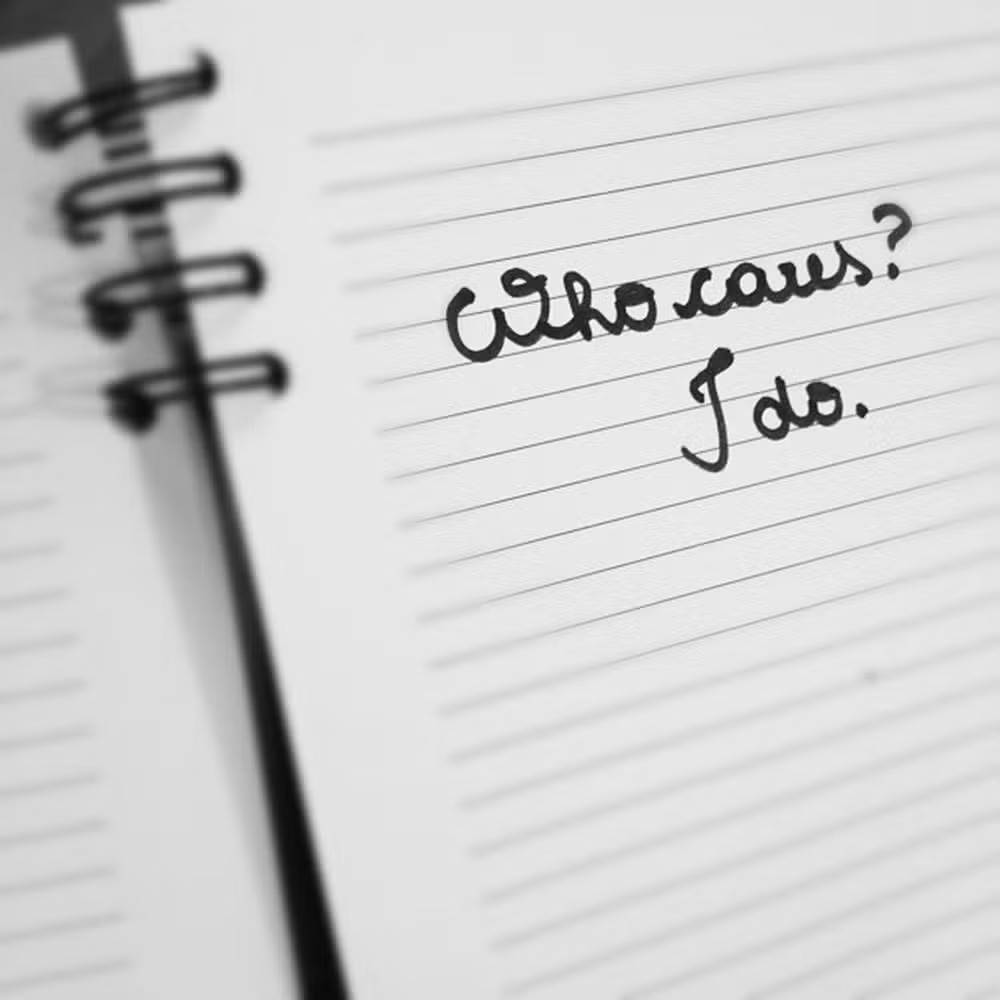 Who cares?
I do.